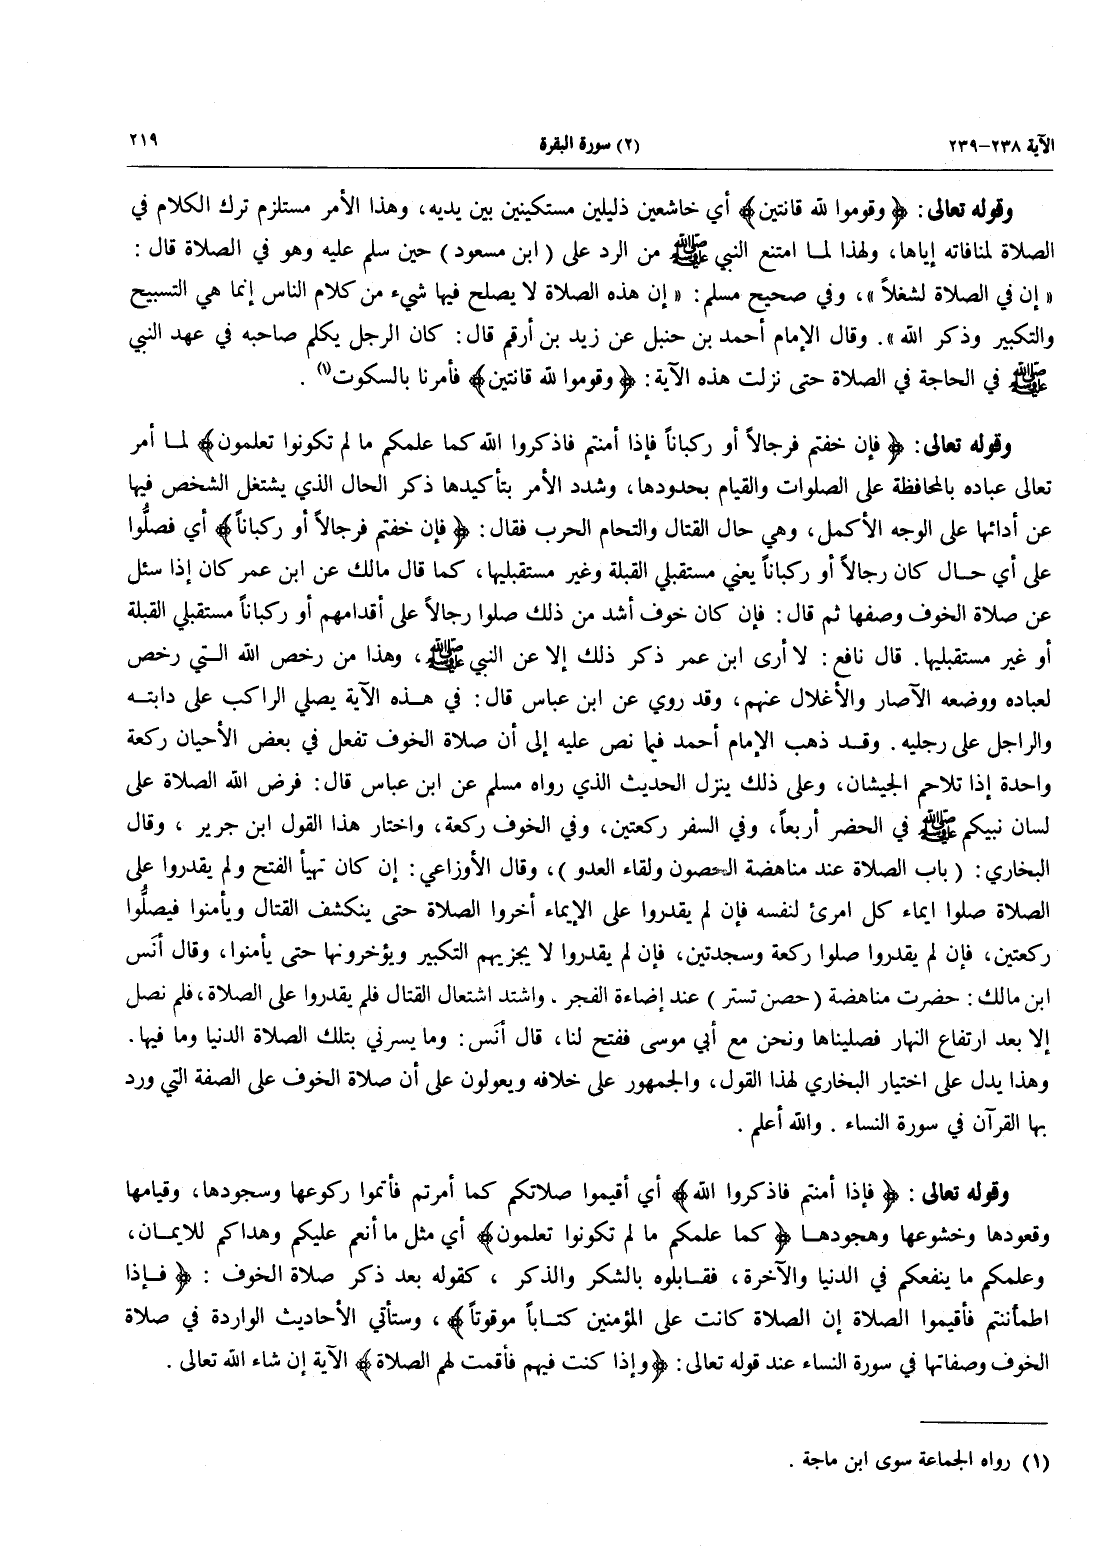 الآية ٢٣٨-٢٣٩ (٢) سورة البقرة ٢١٩
وقوله تعالى : ﴿ وقوموا لله قانتين﴾ أي خاشعين ذليلين مستكينين بين يديه، وهذا الأمر مستلزم ترك الكلام في
الصلاة لمنافاته إياها، ولهذا لما امتنع النبي ﷺ من الرد على ( ابن مسعود ) حين سلم عليه وهو في الصلاة قال :
« إن في الصلاة لشغلاً »، وفي صحيح مسلم: « إن هذه الصلاة لا يصلح فيها شيء من كلام الناس إنما هي التسبيح
والتكبير وذكر الله ». وقال الإمام أحمد بن حنبل عن زيد بن أرقم قال: كان الرجل يكلم صاحبه في عهد النبي
ﷺ في الحاجة في الصلاة حتى نزلت هذه الآية: ﴿ وقوموا لله قانتين﴾ فأمرنا بالسكوت(١) .
وقوله تعالى: ﴿ فإن خفتم فرجالاً أو ركباناً فإذا أمنتم فاذكروا الله كما علمكم ما لم تكونوا تعلمون﴾ لما أمر
تعالى عباده بالمحافظة على الصلوات والقيام بحدودها، وشدد الأمر بتأكيدها ذكر الحال الذي يشتغل الشخص فيها
عن أدائها على الوجه الأكمل، وهي حال القتال والتحام الحرب فقال: ﴿ فإن خفتم فرجالاً أو ركباناً﴾ أي فصلُّوا
على أي حال كان رجالاً أو ركباناً يعني مستقبلي القبلة وغير مستقبليها، كما قال مالك عن ابن عمر كان إذا سئل
عن صلاة الخوف وصفها ثم قال: فإن كان خوف أشد من ذلك صلوا رجالاً على أقدامهم أو ركباناً مستقبلي القبلة
أو غير مستقبليها. قال نافع: لا أرى ابن عمر ذكر ذلك إلا عن النبي ﷺ، وهذا من رخص الله التي رخص
لعباده ووضعه الآصار والأغلال عنهم، وقد روي عن ابن عباس قال: في هذه الآية يصلي الراكب على دابته
والراجل على رجليه. وقد ذهب الإمام أحمد فيما نص عليه إلى أن صلاة الخوف تفعل في بعض الأحيان ركعة
واحدة إذا تلاحم الجيشان، وعلى ذلك ينزل الحديث الذي رواه مسلم عن ابن عباس قال: فرض الله الصلاة على
لسان نبيكم ﷺ في الحضر أربعاً، وفي السفر ركعتين، وفي الخوف ركعة، واختار هذا القول ابن جرير ، وقال
البخاري: ( باب الصلاة عند مناهضة الحصون ولقاء العدو )، وقال الأوزاعي: إن كان تهيأ الفتح ولم يقدروا على
الصلاة صلوا ايماء كل امرئ لنفسه فإن لم يقدروا على الإيماء أخروا الصلاة حتى ينكشف القتال ويأمنوا فيصلُّوا
ركعتين، فإن لم يقدروا صلوا ركعة وسجدتين، فإن لم يقدروا لا يجزيهم التكبير ويؤخرونها حتى يأمنوا، وقال أنَس
ابن مالك: حضرت مناهضة ( حصن تستر ) عند إضاءة الفجر . واشتد اشتعال القتال فلم يقدروا على الصلاة، فلم نصل
إلا بعد ارتفاع النهار فصليناها ونحن مع أبي موسى ففتح لنا، قال أنَس: وما يسرني بتلك الصلاة الدنيا وما فيها.
وهذا يدل على اختيار البخاري لهذا القول، والجمهور على خلافه ويعولون على أن صلاة الخوف على الصفة التي ورد
بها القرآن في سورة النساء . والله أعلم .
وقوله تعالى : ﴿ فإذا أمنتم فاذكروا الله﴾ أي أقيموا صلاتكم كما أمرتم فأتموا ركوعها وسجودها، وقيامها
وقعودها وخشوعها وهجودها ﴿ كما علمكم ما لم تكونوا تعلمون﴾ أي مثل ما أنعم عليكم وهداكم للايمان،
وعلمكم ما ينفعكم في الدنيا والآخرة، فقابلوه بالشكر والذكر ، كقوله بعد ذكر صلاة الخوف : ﴿ فإذا
اطمأننتم فأقيموا الصلاة إن الصلاة كانت على المؤمنين كتاباً موقوتاً﴾ ، وستأتي الأحاديث الواردة في صلاة
الخوف وصفاتها في سورة النساء عند قوله تعالى: ﴿وإذا كنت فيهم فأقمت لهم الصلاة﴾ الآية إن شاء الله تعالى .
(١) رواه الجماعة سوى ابن ماجة .